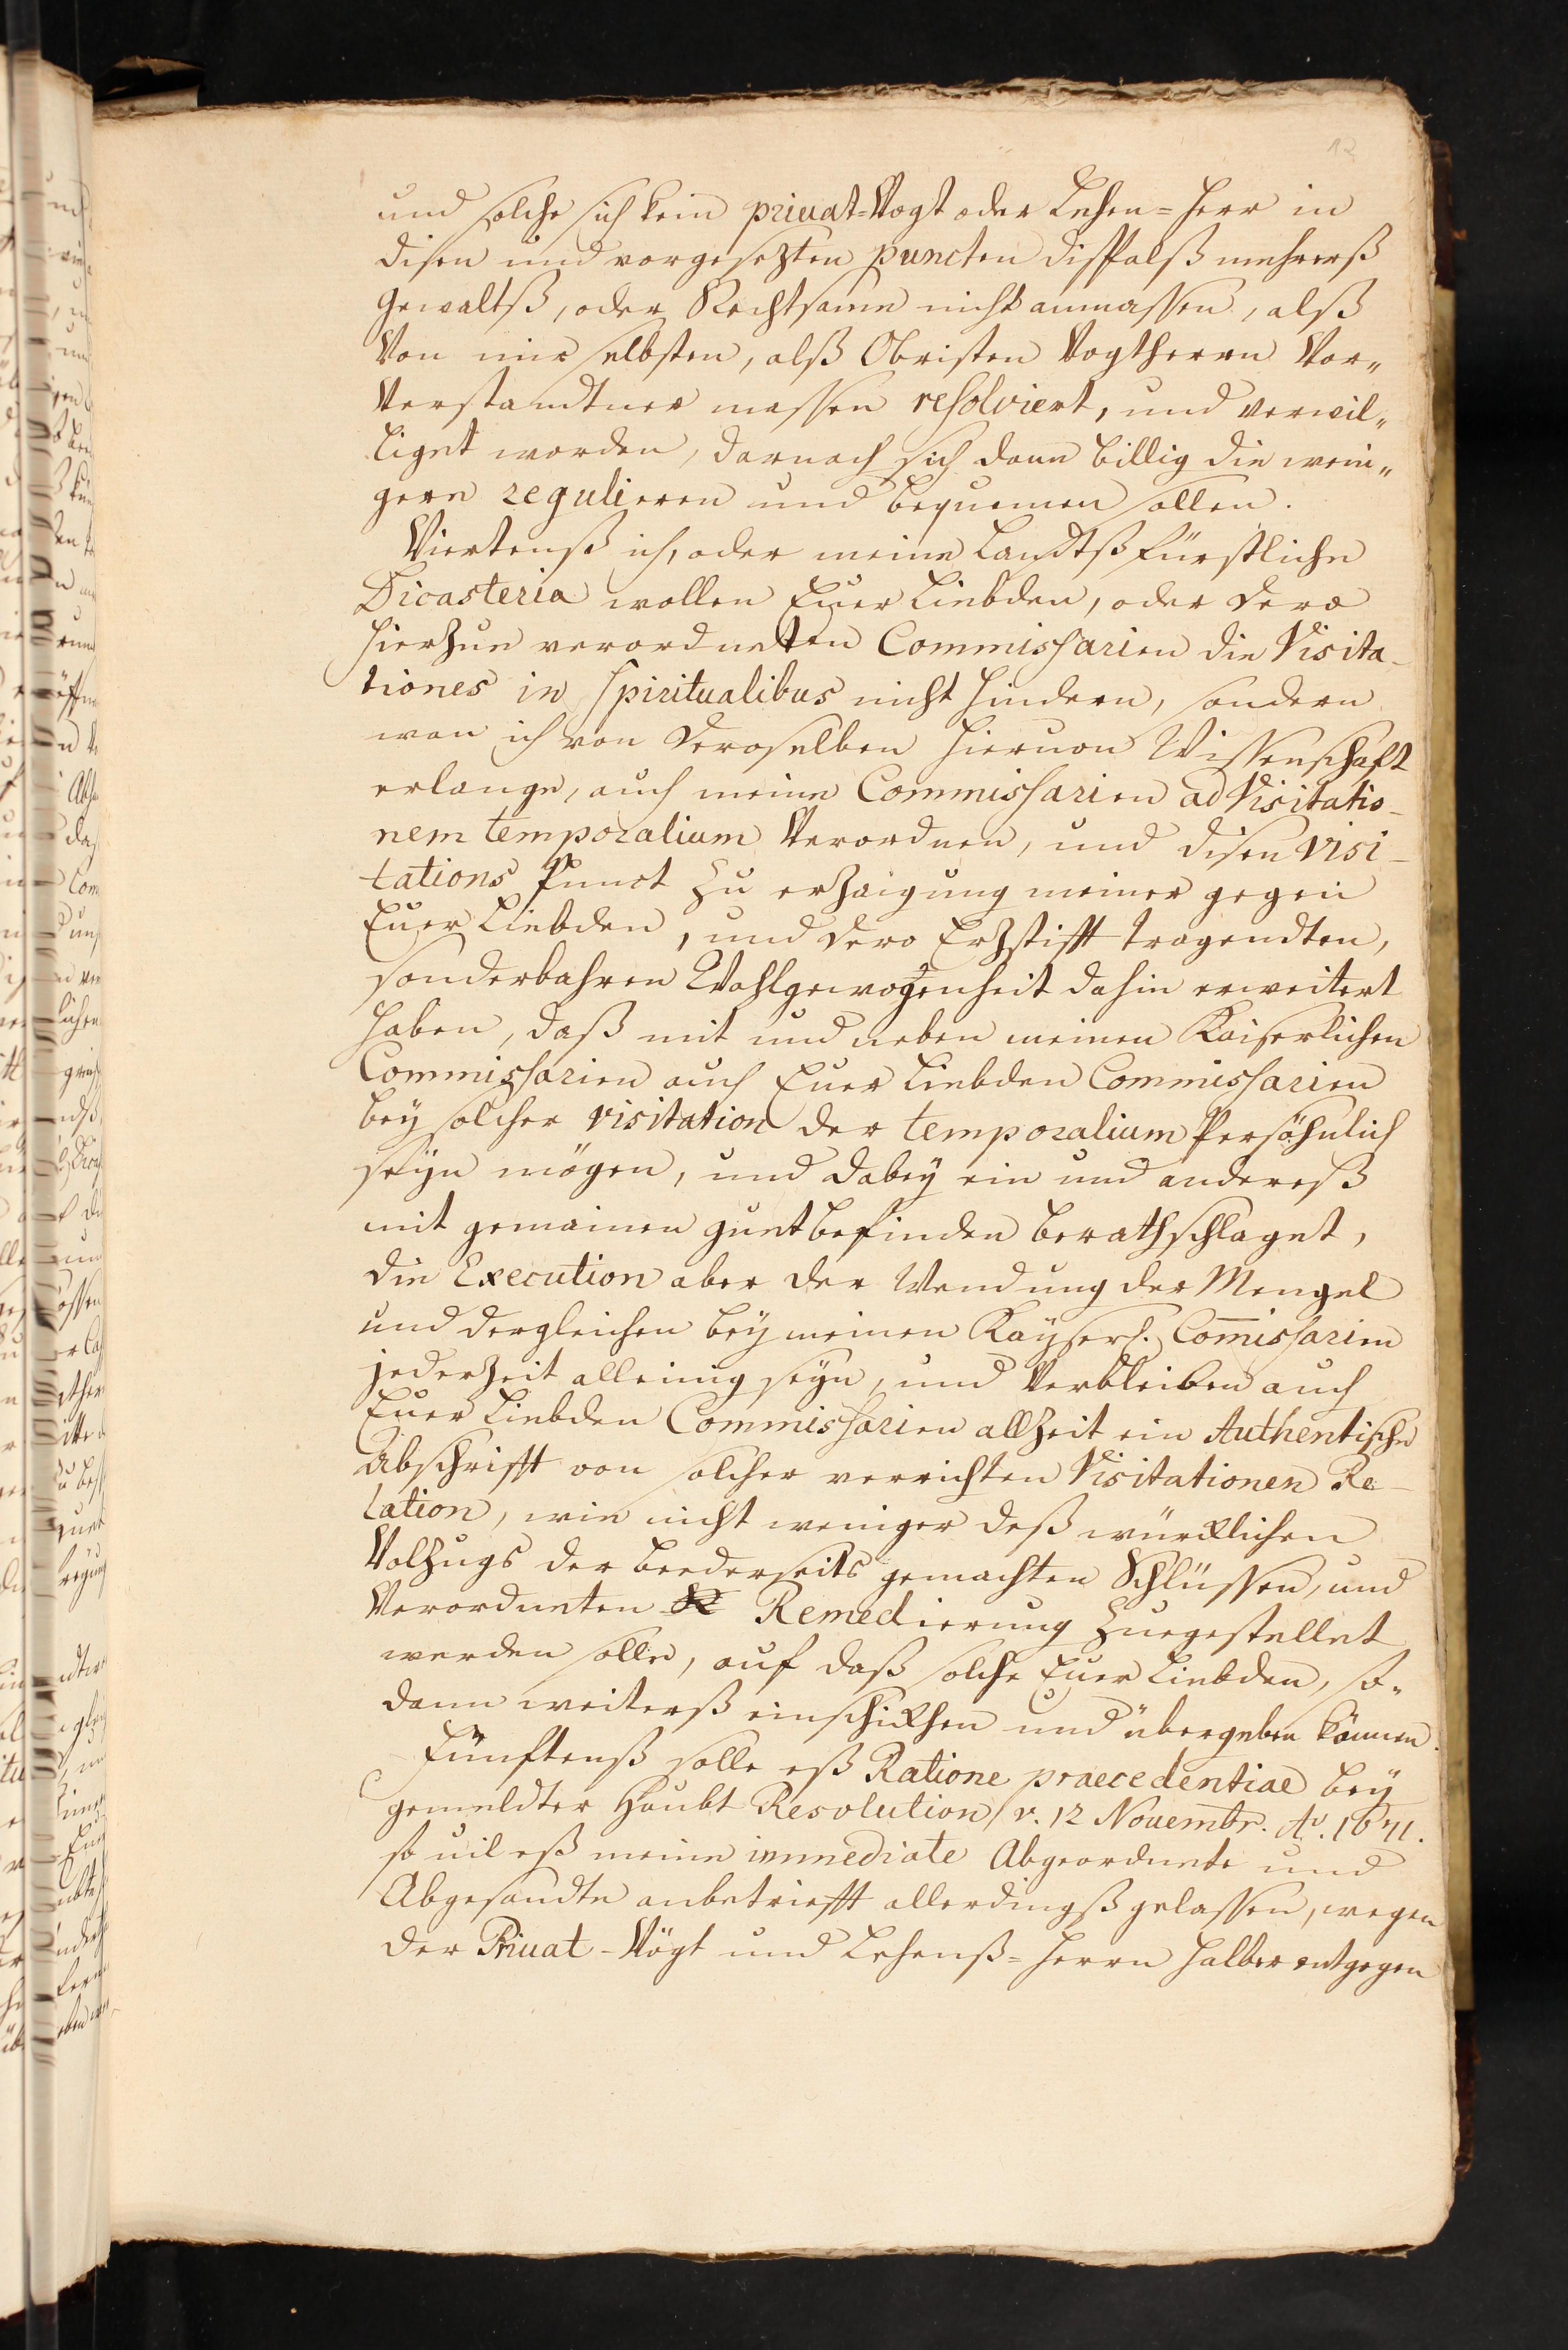 12
und solche sich kein privat=Vogt oder Lehen=Herr in
disen und vorgesezten puncten dißfalß mehrerß
Gewaltß, oder Rechtsame nicht anmassen, alß
Von mir selbsten, alß Obristen Vogtherrn Vor„
Verstandtner massen resolviert, und verwil„
liget worden, darnach sich dann billig die weni„
gern regulieren und bequemen sollen.
Viertenß ich, oder meine Landtßfürstliche
Dicasteria wollen Euer Liebden, oder dero
hierzue verordneten Commissarien die Visita-
tiones in Spiritualibus nicht hindern, sondern
wan ich von deroselben hieruon Wissenschafft
erlange, auch meine Commissarien ad Visitatio-
nem temporalium Verordnen, und disen Visi-
tations Punct zu erzaigung meiner gegen
Euer Liebden, und dero Erzstifft tragendten,
sonderbahren Wohlgewogenheit dahin erweitert
haben, daß mit und neben meinen Kaiserlichen
Commissarien auch Euer Liebden Commissarien
bey solcher visitation der temporalium Persöhnlich
seyn mögen, und dabey ein und andereß
mit gemainen guetbefinden berathschlaget,
die Execution aber der Wendung der Mengel
und dergleichen bey meinen Kayserl. Com̄issarien
jederzeit alleinig seyn, und Verbleiben auch
Euer Liebden Commissarien allzeit ein Authentische
Abschrifft von solcher verrichten Visitationen Re-
lation, wie nicht weniger deß würcklichen
Volzugs der beederseits gemachten Schlüssen, und
Verordneten Remedierung zuegestellet
werden solle, auf daß solche Euer Liebden, so„
dann weiterß einschickhen und übergeben können.
Fünftenß solle eß Ratione praecedentiae bey
gemeldter Haubt Resolution v. 12 Novembr. Ao. 1641.
so uil eß meine immediate Abgeordnete und
Abgesandte anbetriefft allerdingß gelassen, wegen
der Privat-Vögt und Lehenß=Herrn halber entgegen